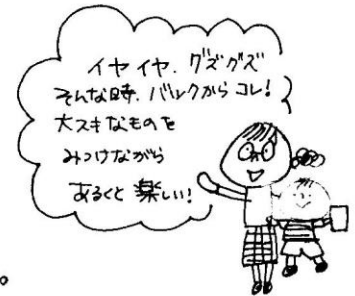 イヤイヤ、グズグズ
そんな時、バルクからコレ!
大スキなものを
みつけながら
あるくと楽しい!